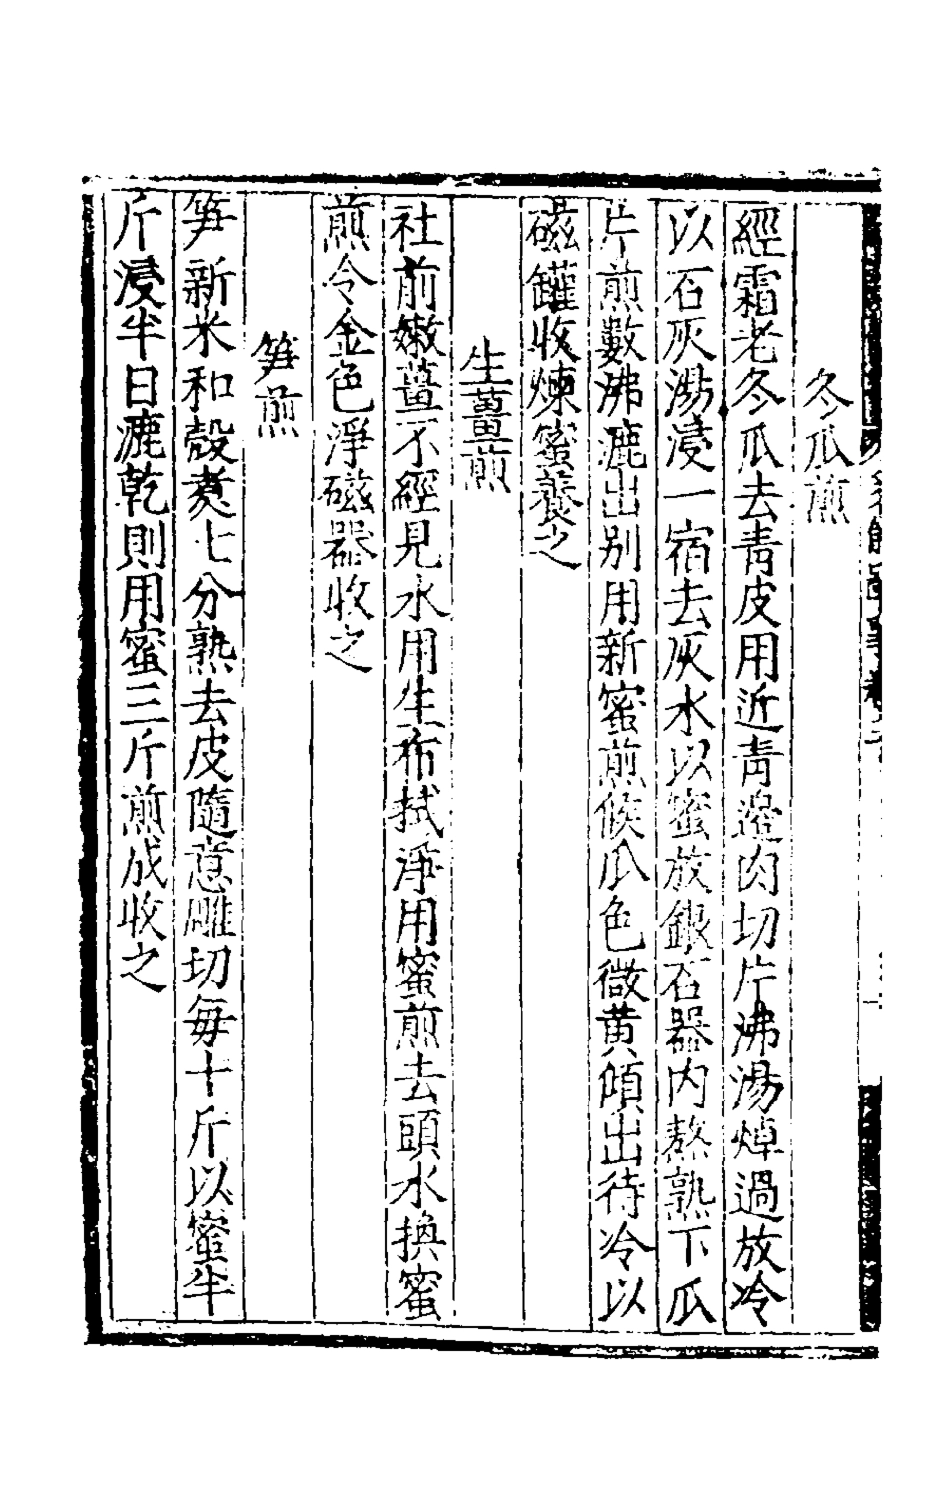 冬瓜煎
經霜老冬瓜去青皮用近青邉肉切片沸湯焯過放冷
以石灰湯浸一宿去灰水以蜜放銀石器内熬熟下瓜
片煎數沸漉出别用新蜜煎候瓜色微黄傾出待冷以
磁罐收煉蜜養之
生薑煎
社前嫩薑不經見水用生布拭淨用蜜煎去頭水換蜜
煎令金色淨磁器收之
笋煎
笋新米和殻煮七分熟去皮隨意雕切每十斤以蜜半
斤浸半日漉乾則用蜜三斤煎成收之